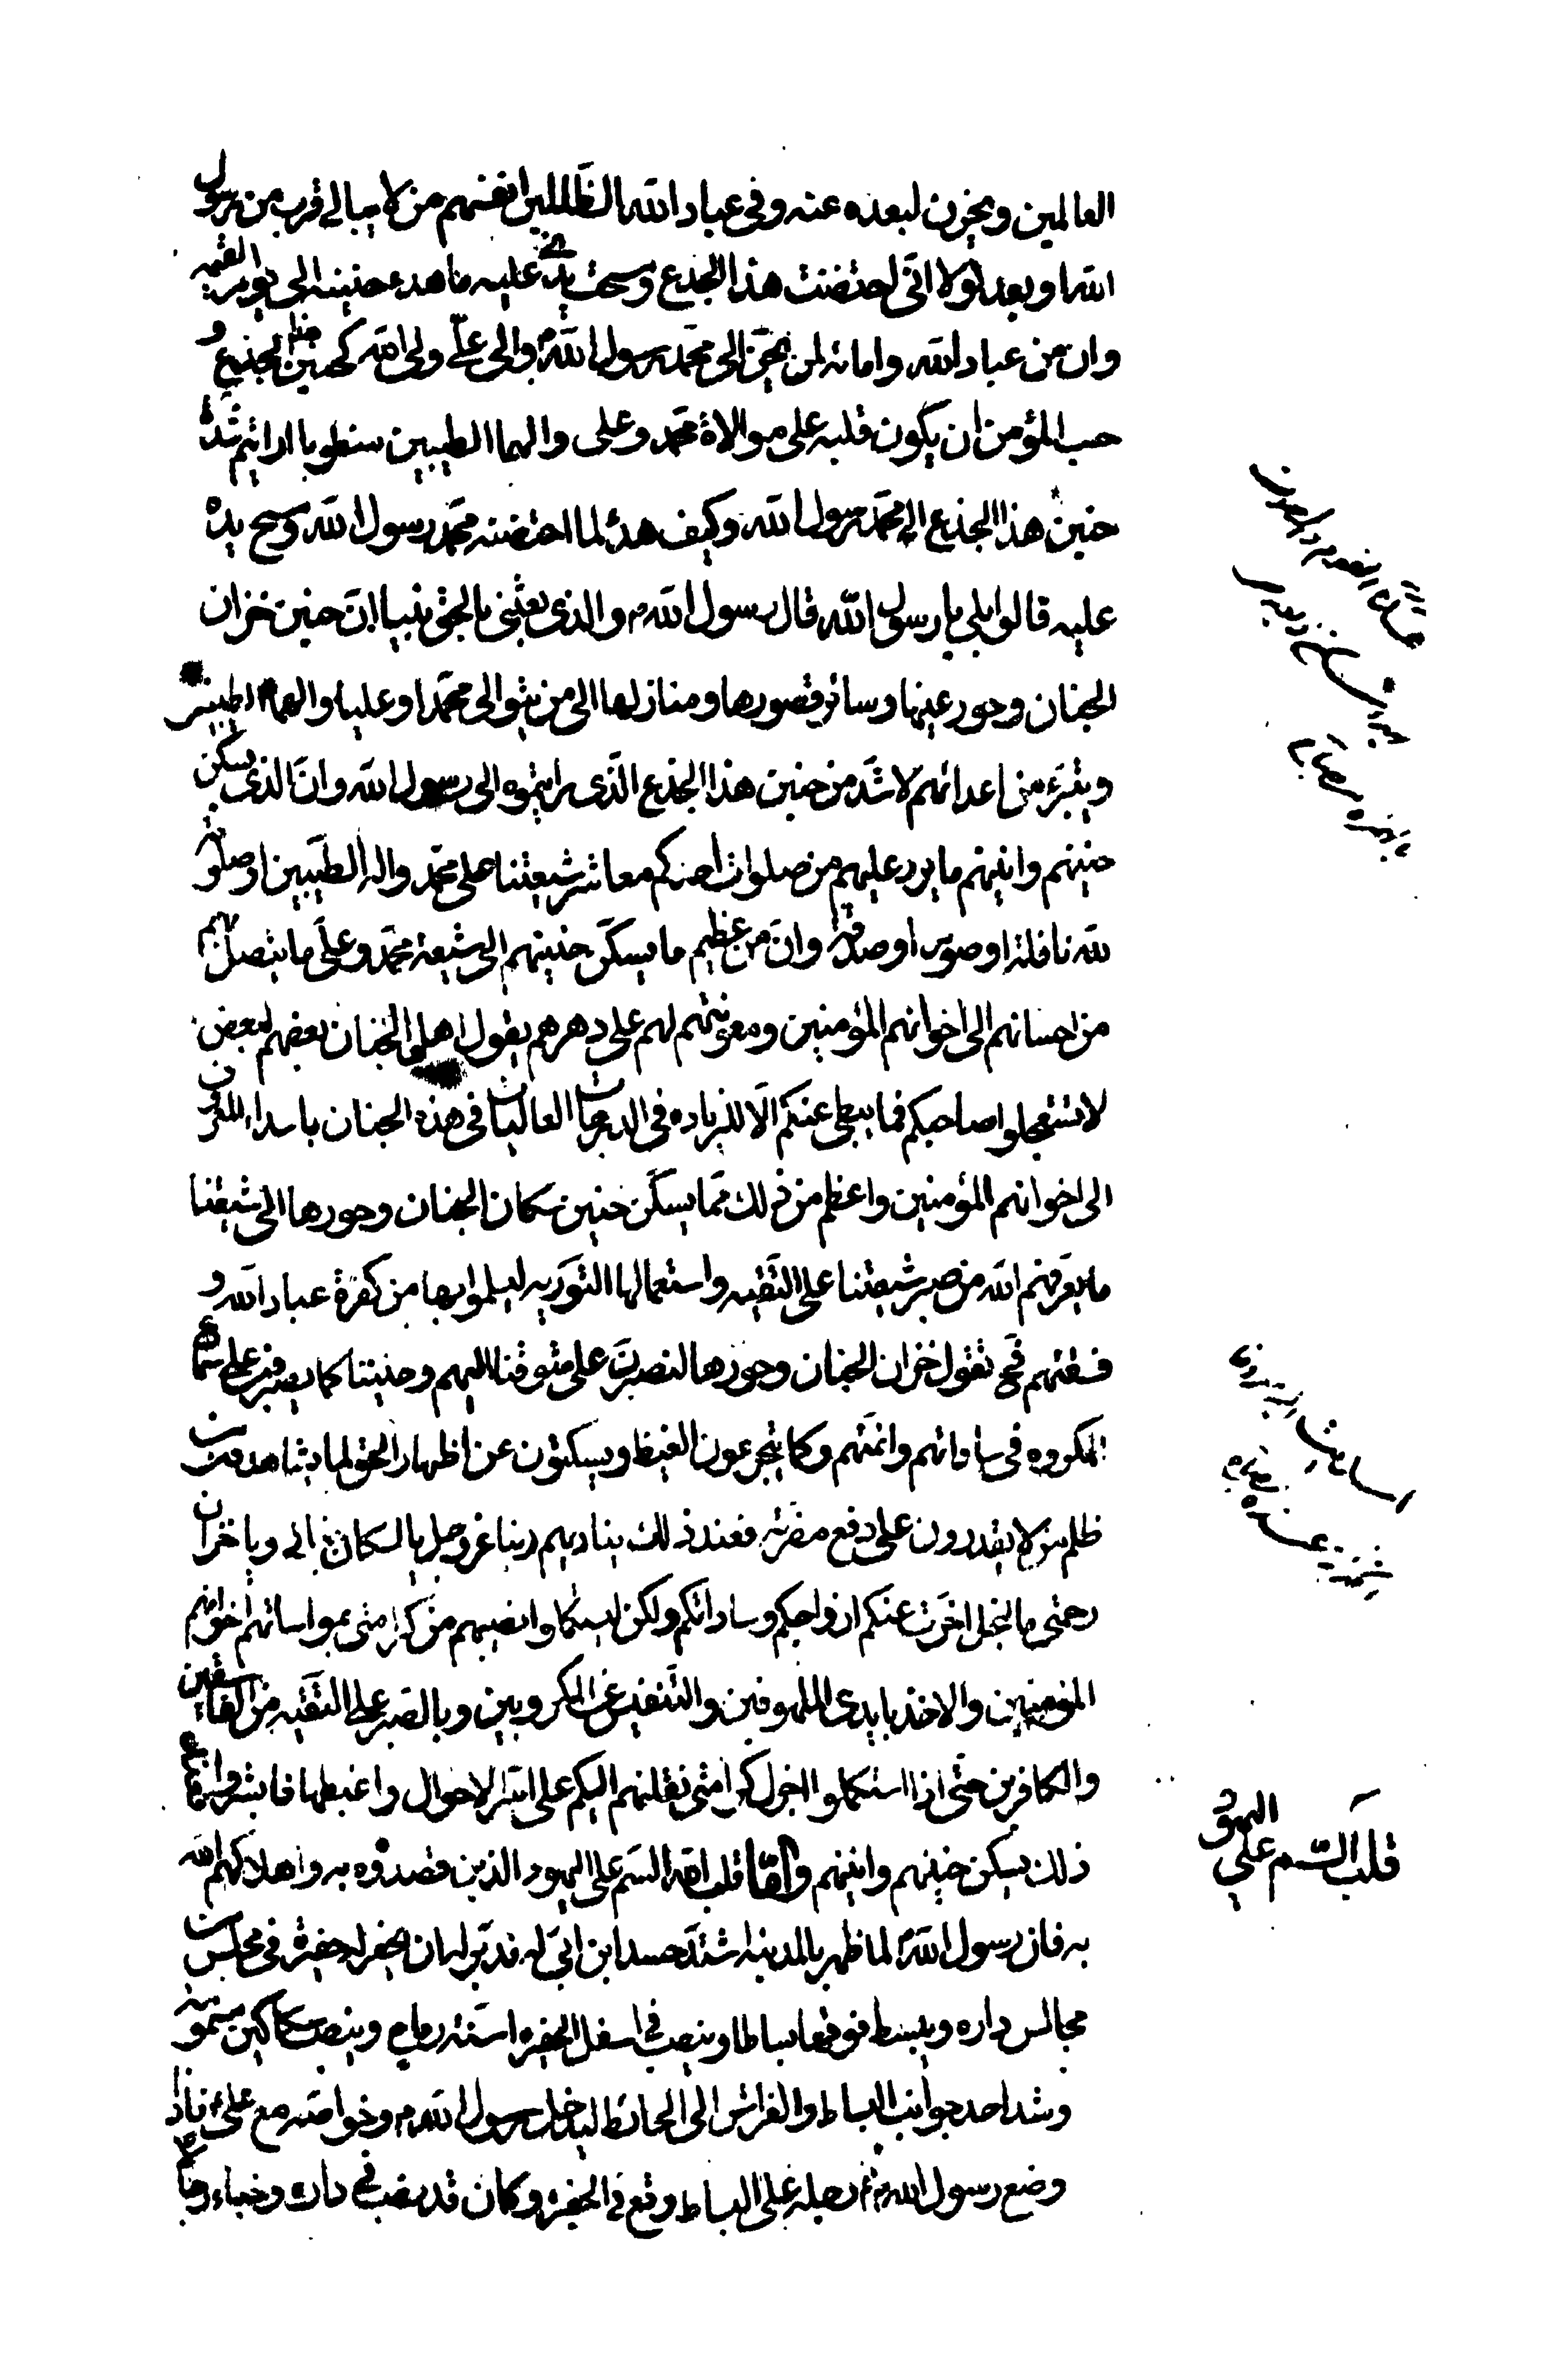 العالمين ويحزن لبعده عنه وفى عباد الله الظالمين انفسهم من لا يبالى قرب من رسول
الله او بعد لولا انّى احتضنت هذا الجذع ومسحت يدى عليه ما هدء حنينه الى يوم القيمه
وان من عباد الله وامائه لمن يحنّ الى محمّد رسول الله والى علىّ ولى الله كحنين هذا الجذع و
حسب المؤمن ان يكون قلبه على موالاة محمّد وعلى والهما الطيبين منطويا ارايتم شدّة
حنين هذا الجذع الى محمّد رسول الله وكيف هدئ لما احتضنه محمّد رسول الله ومسح يده
عليه قالوا بلى يا رسول الله قال رسول الله والذى بعثنى بالحق نبيا انّ حنين خزان
الجنان وحور عينها وسائر قصورها ومنازلها الى من يتوالى محمّدا وعليا والهما الطيبين
ويتبرّء من اعدائهم لاشدّ من حنين هذا الجذع الّذى رايتموه الى رسول الله وانّ الذى يسكن
حنينهم وانينهم ما يرد عليهم من صلوات احدكم معاشر شيعتنا على محمّد واله الطيّبين او صلوة
لله نافلة او صوم او صدقة وانّ من عظيم ما يسكّن حنينهم الى شيعة محمّد وعلى ما يتصل بهم
من احسانهم الى اخوانهم المؤمنين ومعونتهم لهم على دهرهم يقول اهل الجنان بعضهم لبعض
لا تستعجلوا صاحبكم فما يبطى عنكم الّا للزياده فى الدرجات العاليات فى هذه الجنان باسداء المعروف
الى اخوانهم المؤمنين واعظم من ذلك ممّا يسكّن حنين سكان الجنان وحورها الى شيعتنا
ما يعرّفهم الله من صبر شيعتنا على التقيه واستعمالها التوريه ليسلموا بها من كفرة عباد الله و
فسقتهم فح تقول خزان الجنان وحورها لنصبرنّ على شوقنا اليهم وحنيننا كما يصبرون على سماع
المكروه فى ساداتهم وائمّتهم وكما يتجرعون الغيظ ويسكتون عن اظهار الحق لما يشاهدون من
ظلم من لا يقدرون على دفع مضرّته فعند ذلك يناديهم ربنا عزوجل يا سكان جنانى ويا خزان
رحمتى ما لبخل اخّرت عنكم ازواجكم وساداتكم ولكن ليستكملوا نصيبهم من كرامتى بمواساتهم اخوانهم
المؤمنين والاخذ بايدى الملهوفين والتنفيس عن المكروبين وبالصبر على التقيه من الفاسقين
والكافرين حتّى اذا استكملوا اجزل كرامتى نقلتهم اليكم على اسرّ الاحوال واغبطها فابشروا فعند
ذلك يسكن حنينهم وانينهم وامّا قلب الله السّم على اليهود الذين قصدوه به واهلاكهم الله
به فان رسول الله لما ظهر بالمدينه اشتدّ حسد ابن ابىّ له فدبّر له ان يحفر له حفيرة فى مجلس من
مجالس داره ويبسط فوقها بساطا وينصب فى اسفل الحفيره اسنّة رماح وينصب سكاكين مسمومة
وشد احد جوانب البساط والفراش الى الحائط ليدخل رسول الله وخواصه مع علىّ فاذا
وضع رسول الله رجله على البساط وقع فى الحفيرة وكان قد نصب فى داره وخباء رجالا
قلب السّم على اليهود